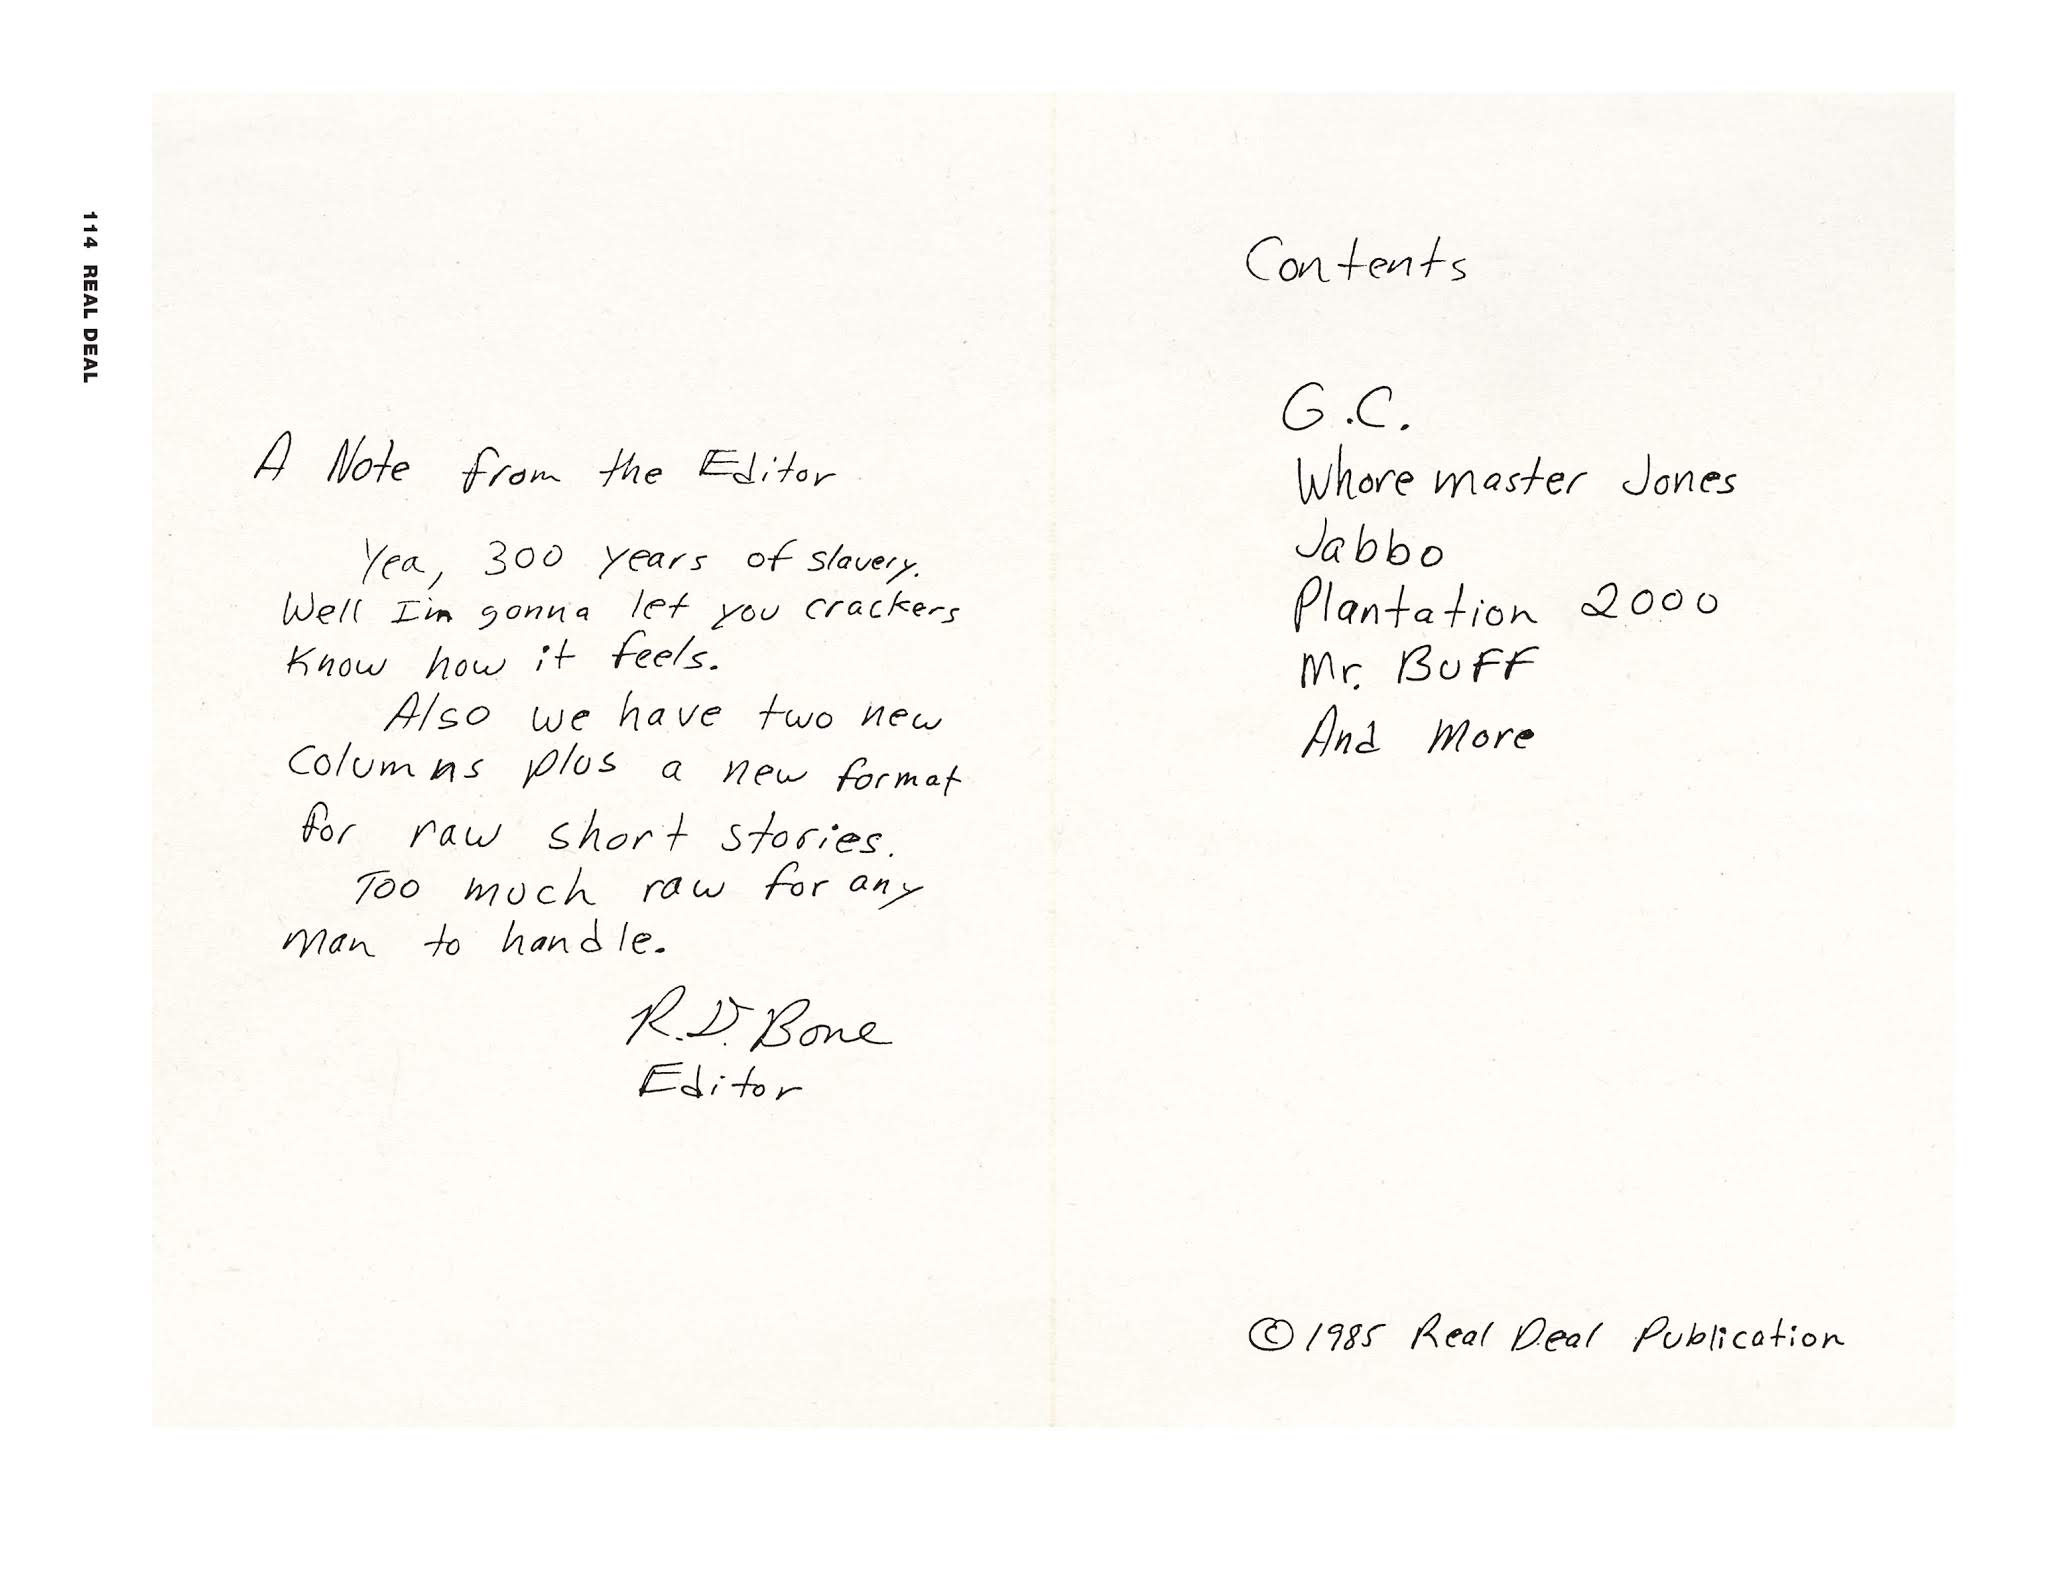 114 REAL DEAL
A Note from the Editor
Yea, 300 years of slavery.
Well I'm gonna let you crackers
Know how it feels.
Also we have two new
Columns plus a new format
for raw short stories.
Too much raw for any
man to handle.
R.D. Bone
Editor
Contents
G.C.
Whore master Jones
Jabbo
Plantation 2000
Mr. Buff
And More
© 1985 Real Deal Publication